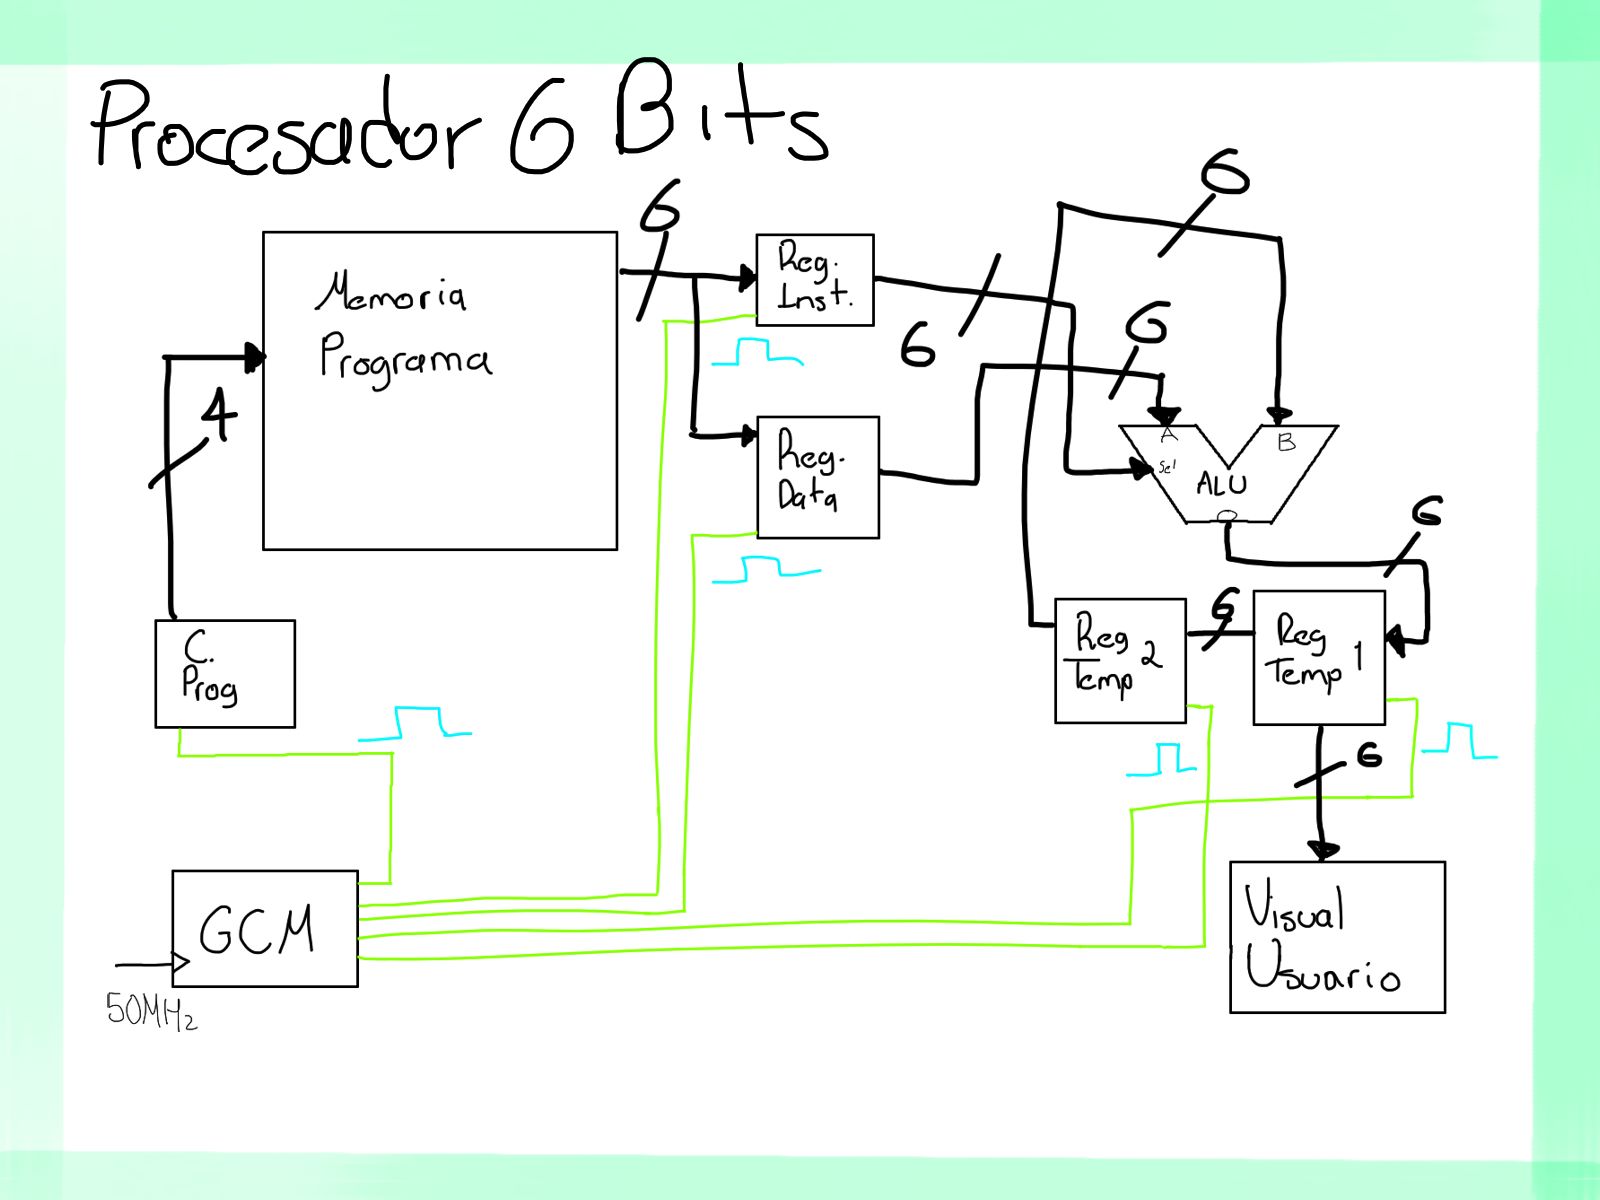 Procesador 6 Bits
6
6
Memoria
Programa
Reg.
Inst.
6
6
4
Reg.
Data
A
B
Sel
ALU
O
6
C.
Prog
Reg
Temp 2
6
Reg
Temp 1
6
GCM
50MHz
Visual
Usuario